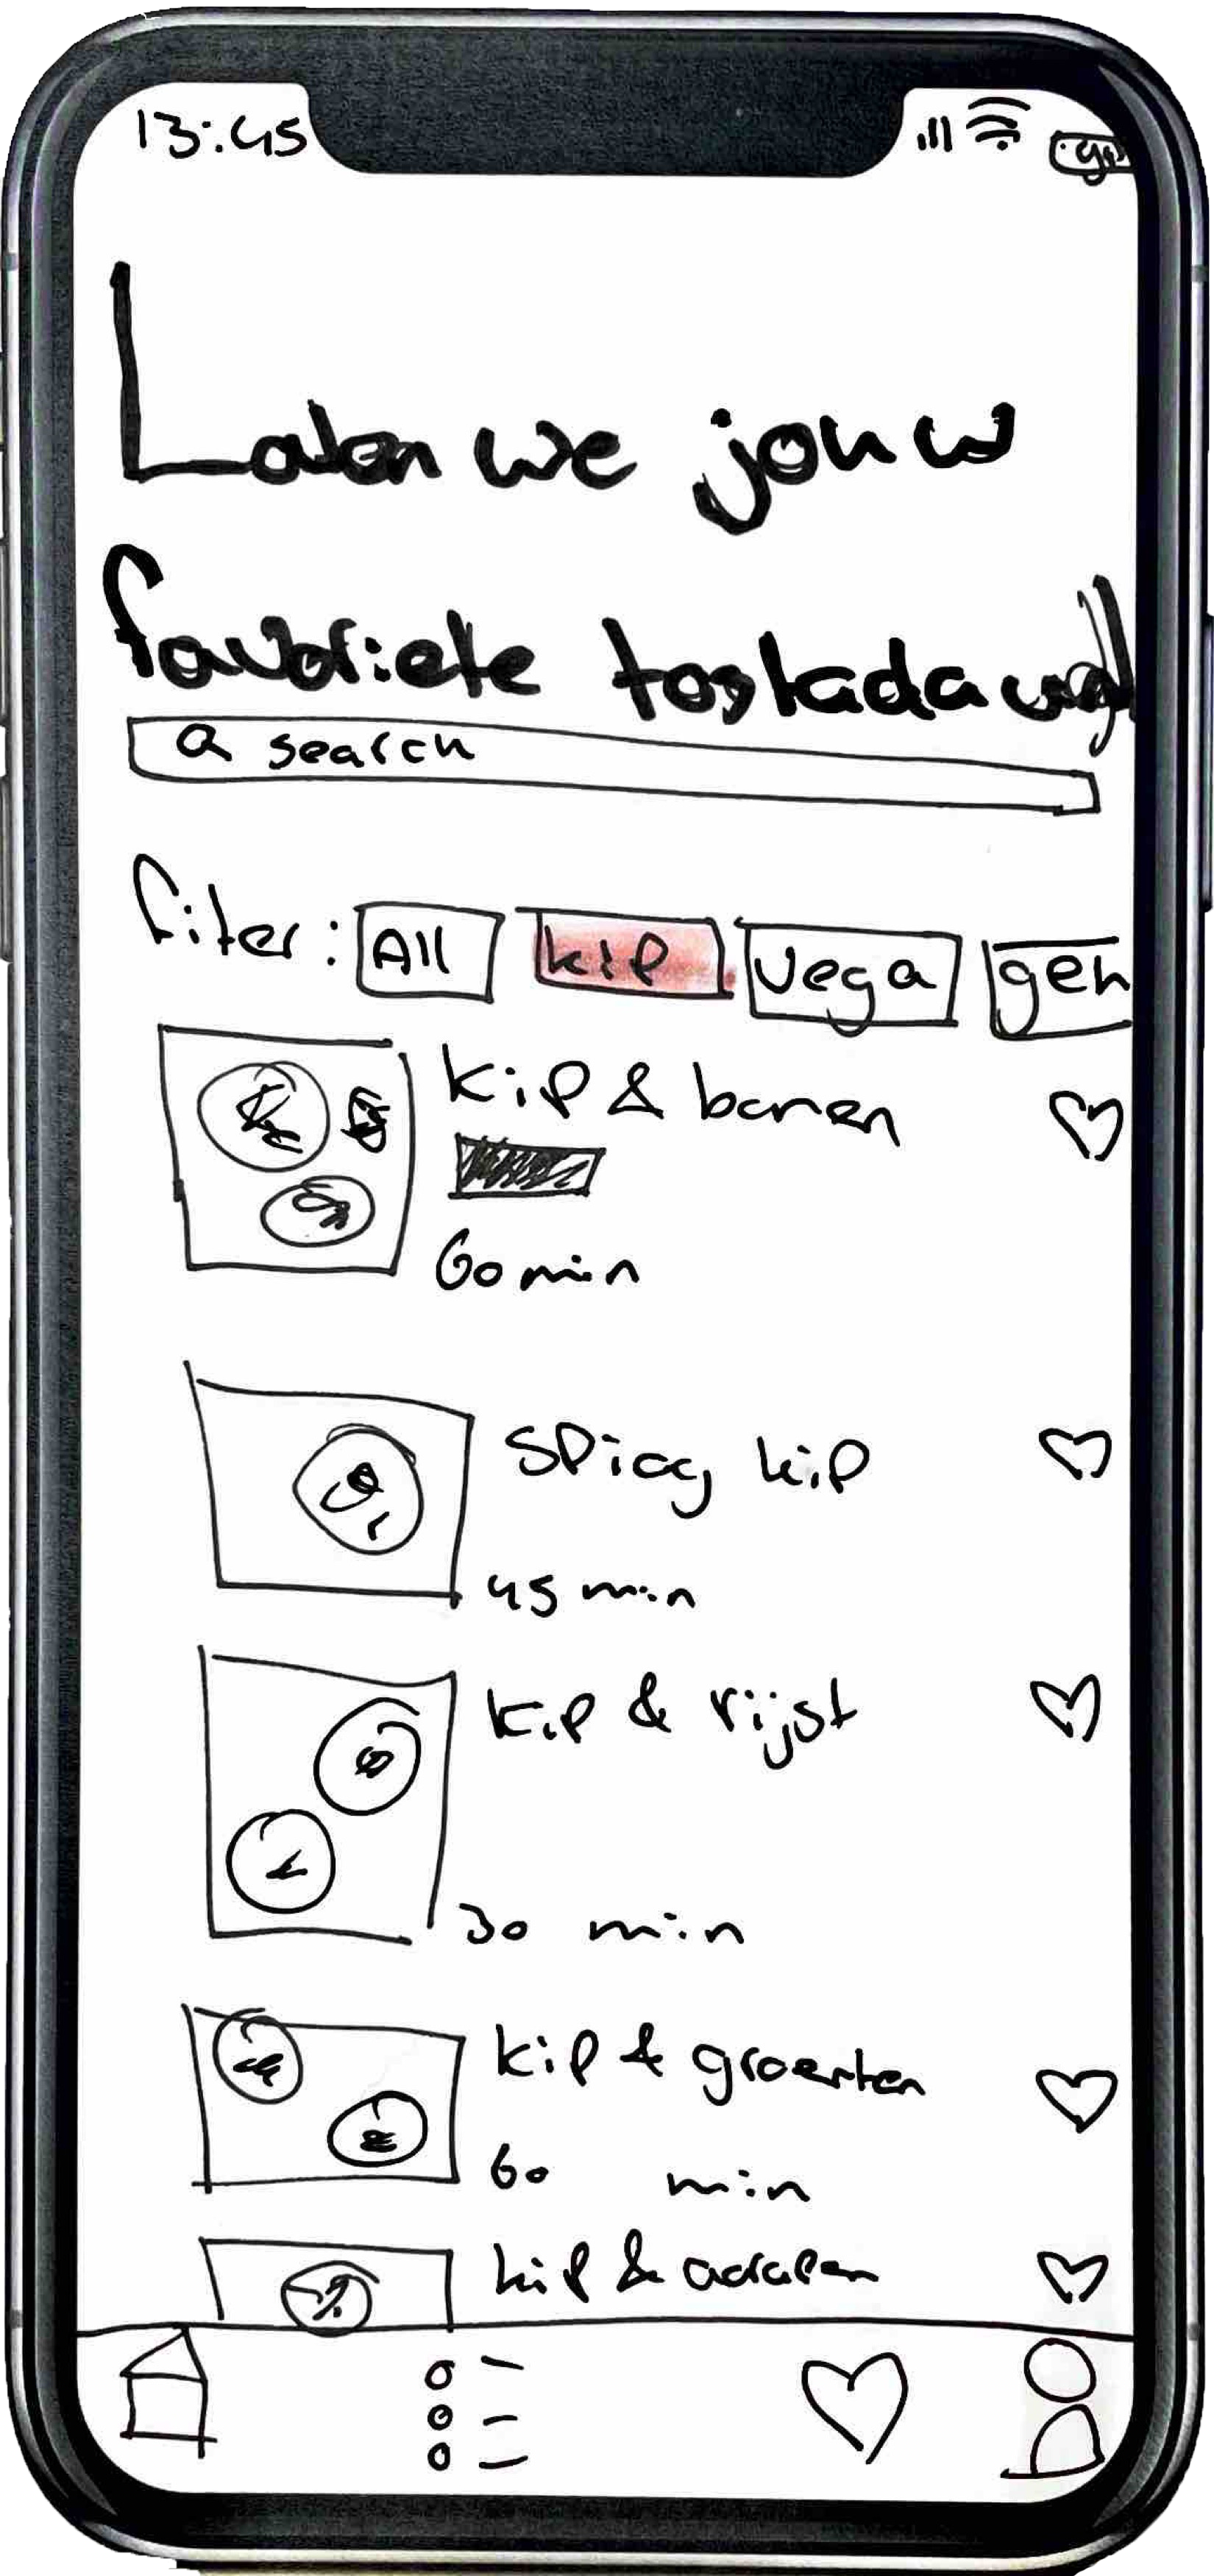 13:45
Laten we jouw
favoriete tostada
search
filter: All kip Vega geh
kip & bonen
60 min
SPicy kip
45 min
kip & rijst
30 min
kip & groenten
60 min